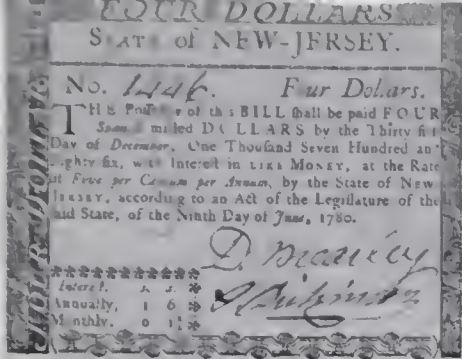 FOUR DOLLARS
STATE of NEW-JERSEY.
No. 1446. Four Dollars.
THE Possessor of this BILL shall be paid FOUR
Spanish milled DOLLARS by the Thirty first
Day of December, One Thousand Seven Hundred and
Eighty six, with Interest in LIKE MONEY, at the Rate
of Five per Centum per Annum, by the State of NEW
JERSEY, according to an Act of the Legislature of the
said State, of the Ninth Day of June, 1780.
D.
Interest. s. d.
Annually, 1 6
Monthly. 0 1½